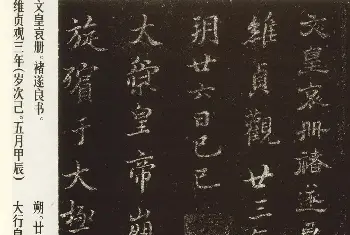 文皇哀册褚遂
維貞觀廿三年
玥廿六日己巳
太宗皇帝崩
旋殯于大極
文皇哀册 褚遂良书。
维贞观三年(岁次己。五月甲辰)
朔,廿
大行